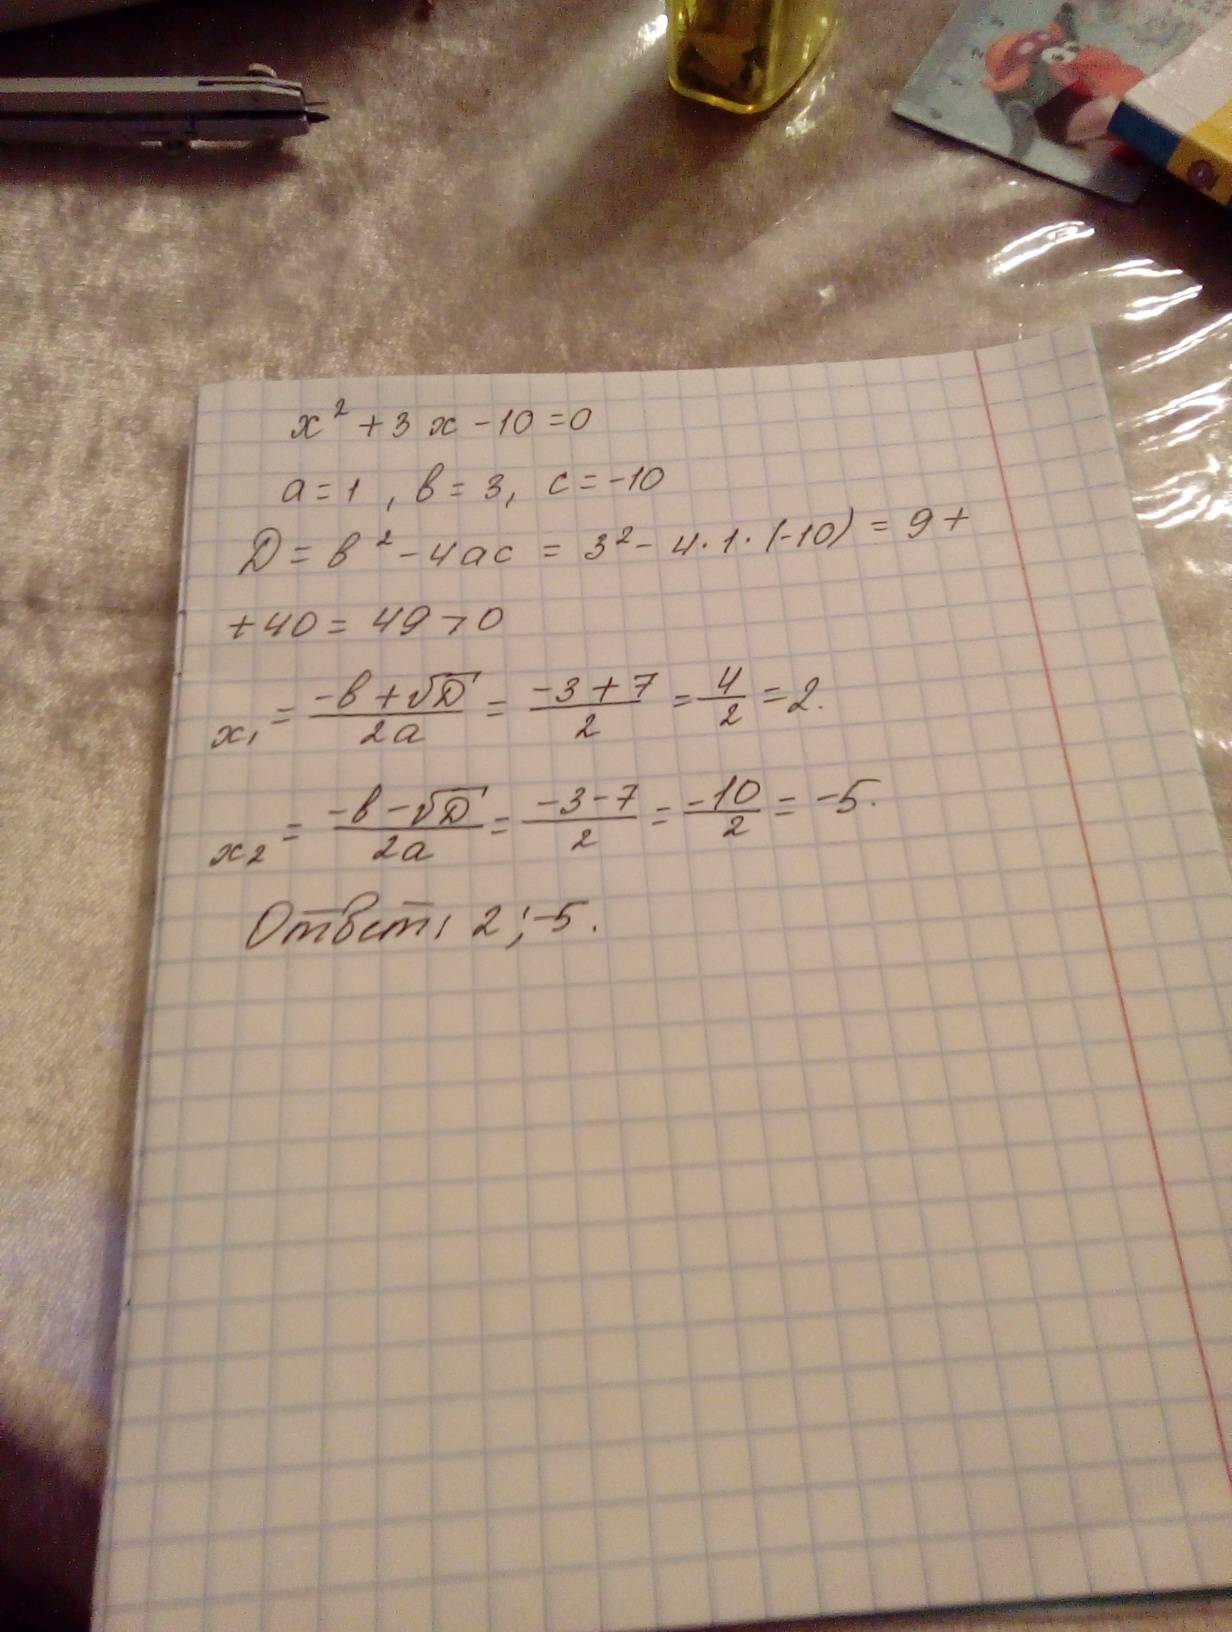 x² + 3x - 10 = 0
a = 1, b = 3, c = -10
D = b² - 4ac = 3² - 4·1·(-10) = 9 +
+ 40 = 49 > 0
x₁ = (-b + √D)/(2a) = (-3 + 7)/2 = 4/2 = 2.
x₂ = (-b - √D)/(2a) = (-3 - 7)/2 = -10/2 = -5.
Ответ: 2; -5.